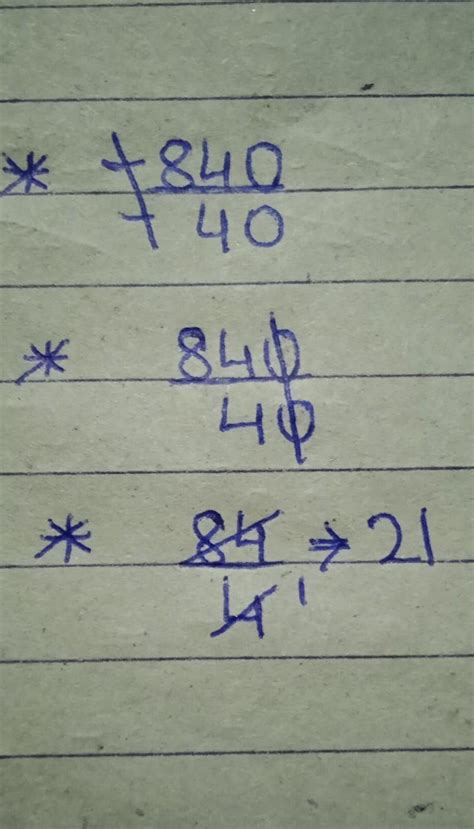 * -840
-40
* 840
40
* 84 → 21
4 1